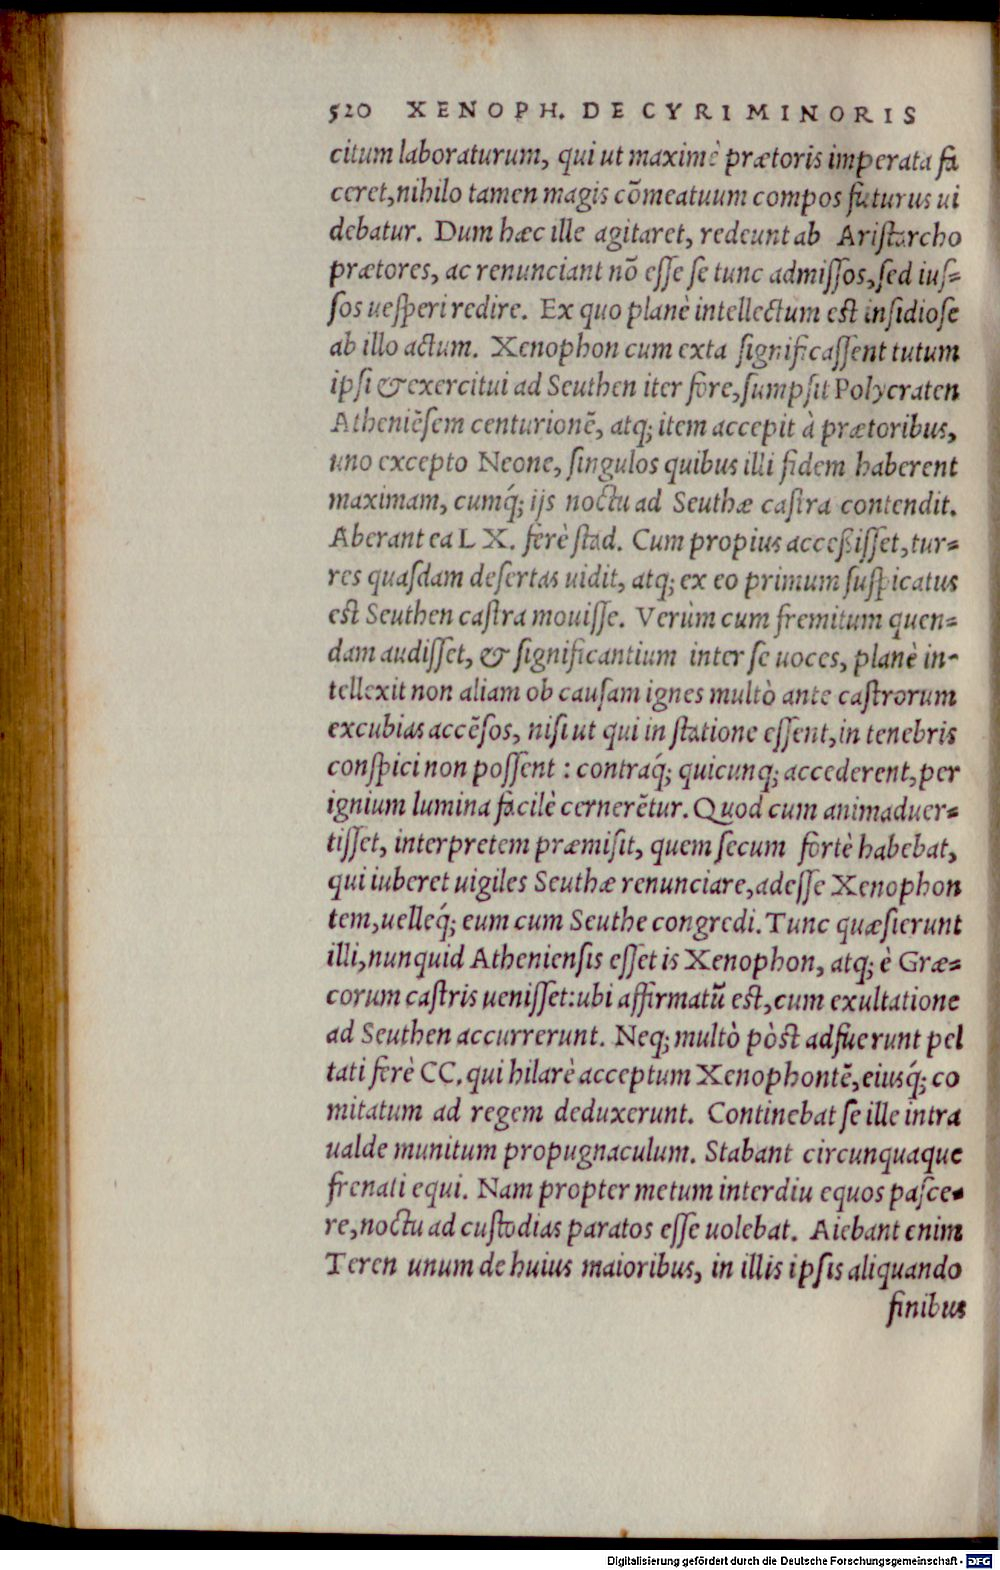 520 XENOPH. DE CYRI MINORIS
citum laboraturum, qui ut maximè prætoris imperata fa
ceret, nihilo tamen magis cõmeatuum compos futurus ui
debatur. Dum hæc ille agitaret, redeunt ab Aristarcho
prætores, ac renunciant nõ esse se tunc admissos, sed ius=
sos uesperi redire. Ex quo planè intellectum est insidiose
ab illo actum. Xenophon cum exta significassent tutum
ipsi & exercitui ad Seuthen iter fore, sumpsit Polycraten
Atheniẽsem centurionẽ, atq; item accepit à prætoribus,
uno excepto Neone, singulos quibus illi fidem haberent
maximam, cumq́; ijs noctu ad Seuthæ castra contendit.
Aberant ea LX. ferè stad. Cum propius acceßisset, tur=
res quasdam desertas uidit, atq; ex eo primum suspicatus
est Seuthen castra mouisse. Verùm cum fremitum quen=
dam audisset, & significantium inter se uoces, planè in-
tellexit non aliam ob causam ignes multò ante castrorum
excubias accẽsos, nisi ut qui in statione essent, in tenebris
conspici non possent : contraq́; quicunq; accederent, per
ignium lumina facilè cernerẽtur. Quod cum animaduer=
tisset, interpretem præmisit, quem secum fortè habebat,
qui iuberet uigiles Seuthæ renunciare, adesse Xenophon
tem, uelleq́; eum cum Seuthe congredi. Tunc quæsierunt
illi, nunquid Atheniensis esset is Xenophon, atq; è Græ=
corum castris uenisset: ubi affirmatũ est, cum exultatione
ad Seuthen accurrerunt. Neq; multò pòst adfuerunt pel
tati ferè CC. qui hilarè acceptum Xenophontẽ, eiusq́; co
mitatum ad regem deduxerunt. Continebat se ille intra
ualde munitum propugnaculum. Stabant circunquaque
frenati equi. Nam propter metum interdiu equos pasce-
re, noctu ad custodias paratos esse uolebat. Aiebant enim
Teren unum de huius maioribus, in illis ipsis aliquando
finibus
Digitalisierung gefördert durch die Deutsche Forschungsgemeinschaft - DFG